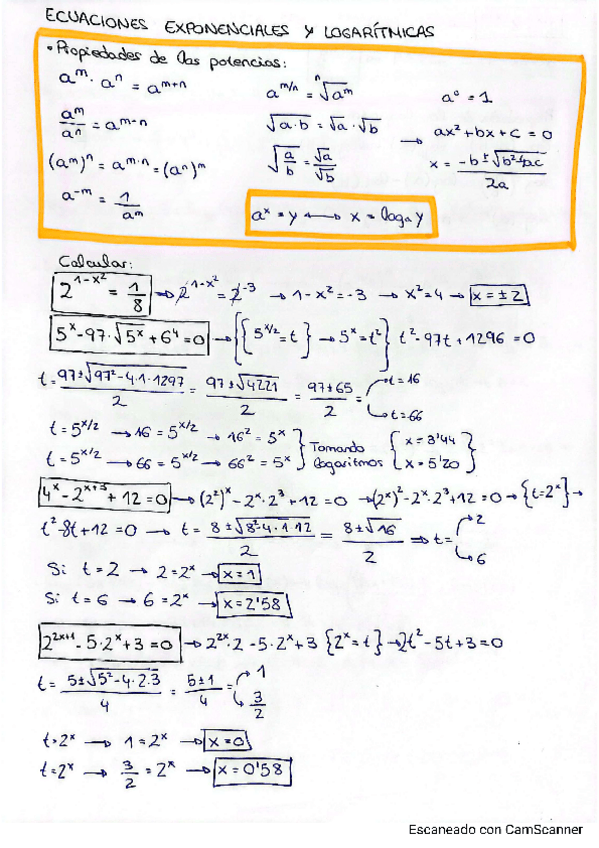 ECUACIONES EXPONENCIALES Y LOGARÍTNICAS
• Propiedades de las potencias:
a^m · a^n = a^(m+n)   a^(m/n) = ⁿ√(a^m)   a^0 = 1
a^m/a^n = a^(m-n)   √(a·b) = √a · √b   → ax² + bx + c = 0
(a^m)^n = a^(m·n) = (a^n)^m   √(a/b) = √a/√b   x = (-b ± √(b²-4ac))/2a
a^(-m) = 1/a^m   a^x = y ⟷ x = log_a y
Calcular:
2^(1-x²) = 1/8 → 2^(1-x²) = 2^(-3) → 1-x² = -3 → x² = 4 → x = ±2
5^x - 97·√(5^x) + 6^4 = 0 → {{5^(x/2) = t} → 5^x = t²} t² - 97t + 1296 = 0
t = (97 ± √(97² - 4·1·1297))/2 = (97 ± √4221)/2 = (97 ± 65)/2 = t = 16 t = 66
t = 5^(x/2) → 16 = 5^(x/2) → 16² = 5^x } Tomando { x = 3'44
t = 5^(x/2) → 66 = 5^(x/2) → 66² = 5^x } logaritmos { x = 5'20
4^x - 2^(x+3) + 12 = 0 → (2²)^x - 2^x · 2³ + 12 = 0 → (2^x)² - 2^x · 2³ + 12 = 0 → {t = 2^x} →
t² - 8t + 12 = 0 → t = (8 ± √(8² - 4·1·12))/2 = (8 ± √16)/2 ⇒ t = 2 6
Si t = 2 → 2 = 2^x → x = 1
Si t = 6 → 6 = 2^x → x = 2'58
2^(2x+1) - 5·2^x + 3 = 0 → 2^(2x) · 2 - 5·2^x + 3 {2^x = t} → 2t² - 5t + 3 = 0
t = (5 ± √(5² - 4·2·3))/4 = (5 ± 1)/4 = 1 3/2
t = 2^x → 1 = 2^x → x = 0
t = 2^x → 3/2 = 2^x → x = 0'58
Escaneado con CamScanner